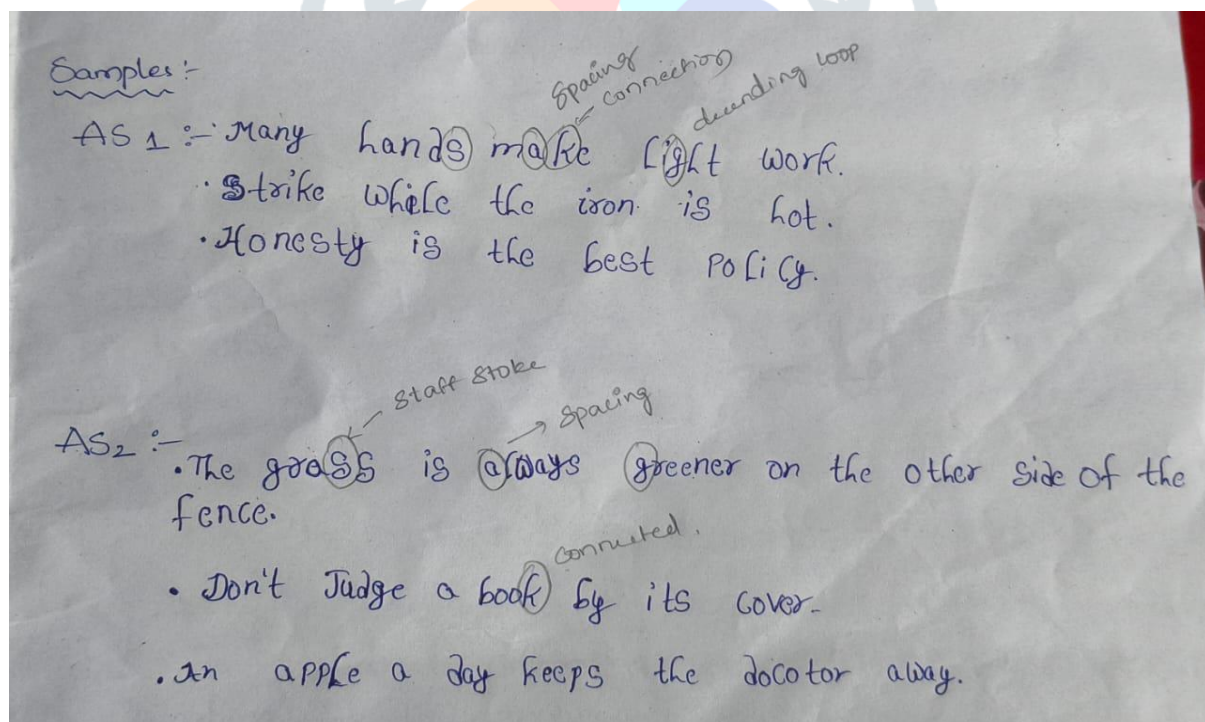 Samples :-
Spacing
connection
decending loop
AS 1 :- Many hands make light work.
· Strike while the iron is hot.
· Honesty is the best policy.
Staff Stoke
Spacing
AS2 :-
· The grass is always greener on the other side of the
fence.
connected.
· Don't Judge a book by its cover.
· An apple a day keeps the docotor away.